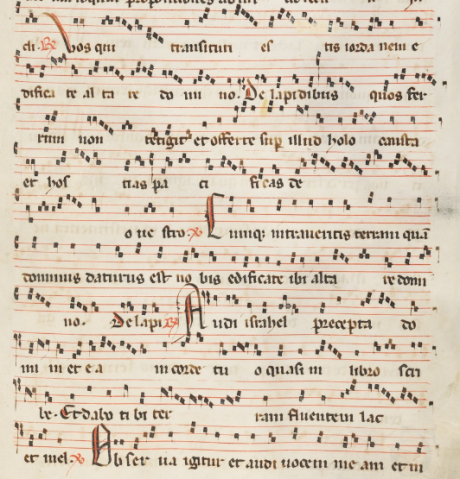 eli. R Vos qui transituri es tis iorda nem e
difica te al ta re do mi no. De lapidibus quos fer
rum non tetigit et offerte sup illud holo causta
et hos tias pa ci ficas de
o ue stro. V Cumq; intraueritis terram quā
dominus daturus est uo bis edificate ibi alta re domi
no. De lapi R Audi israhel precepta do
mi ni et e a in corde tu o quasi in libro scri
be. Et dabo ti bi ter ram fluentem lac
et mel. V Obser ua igitur et audi uocem me am et in